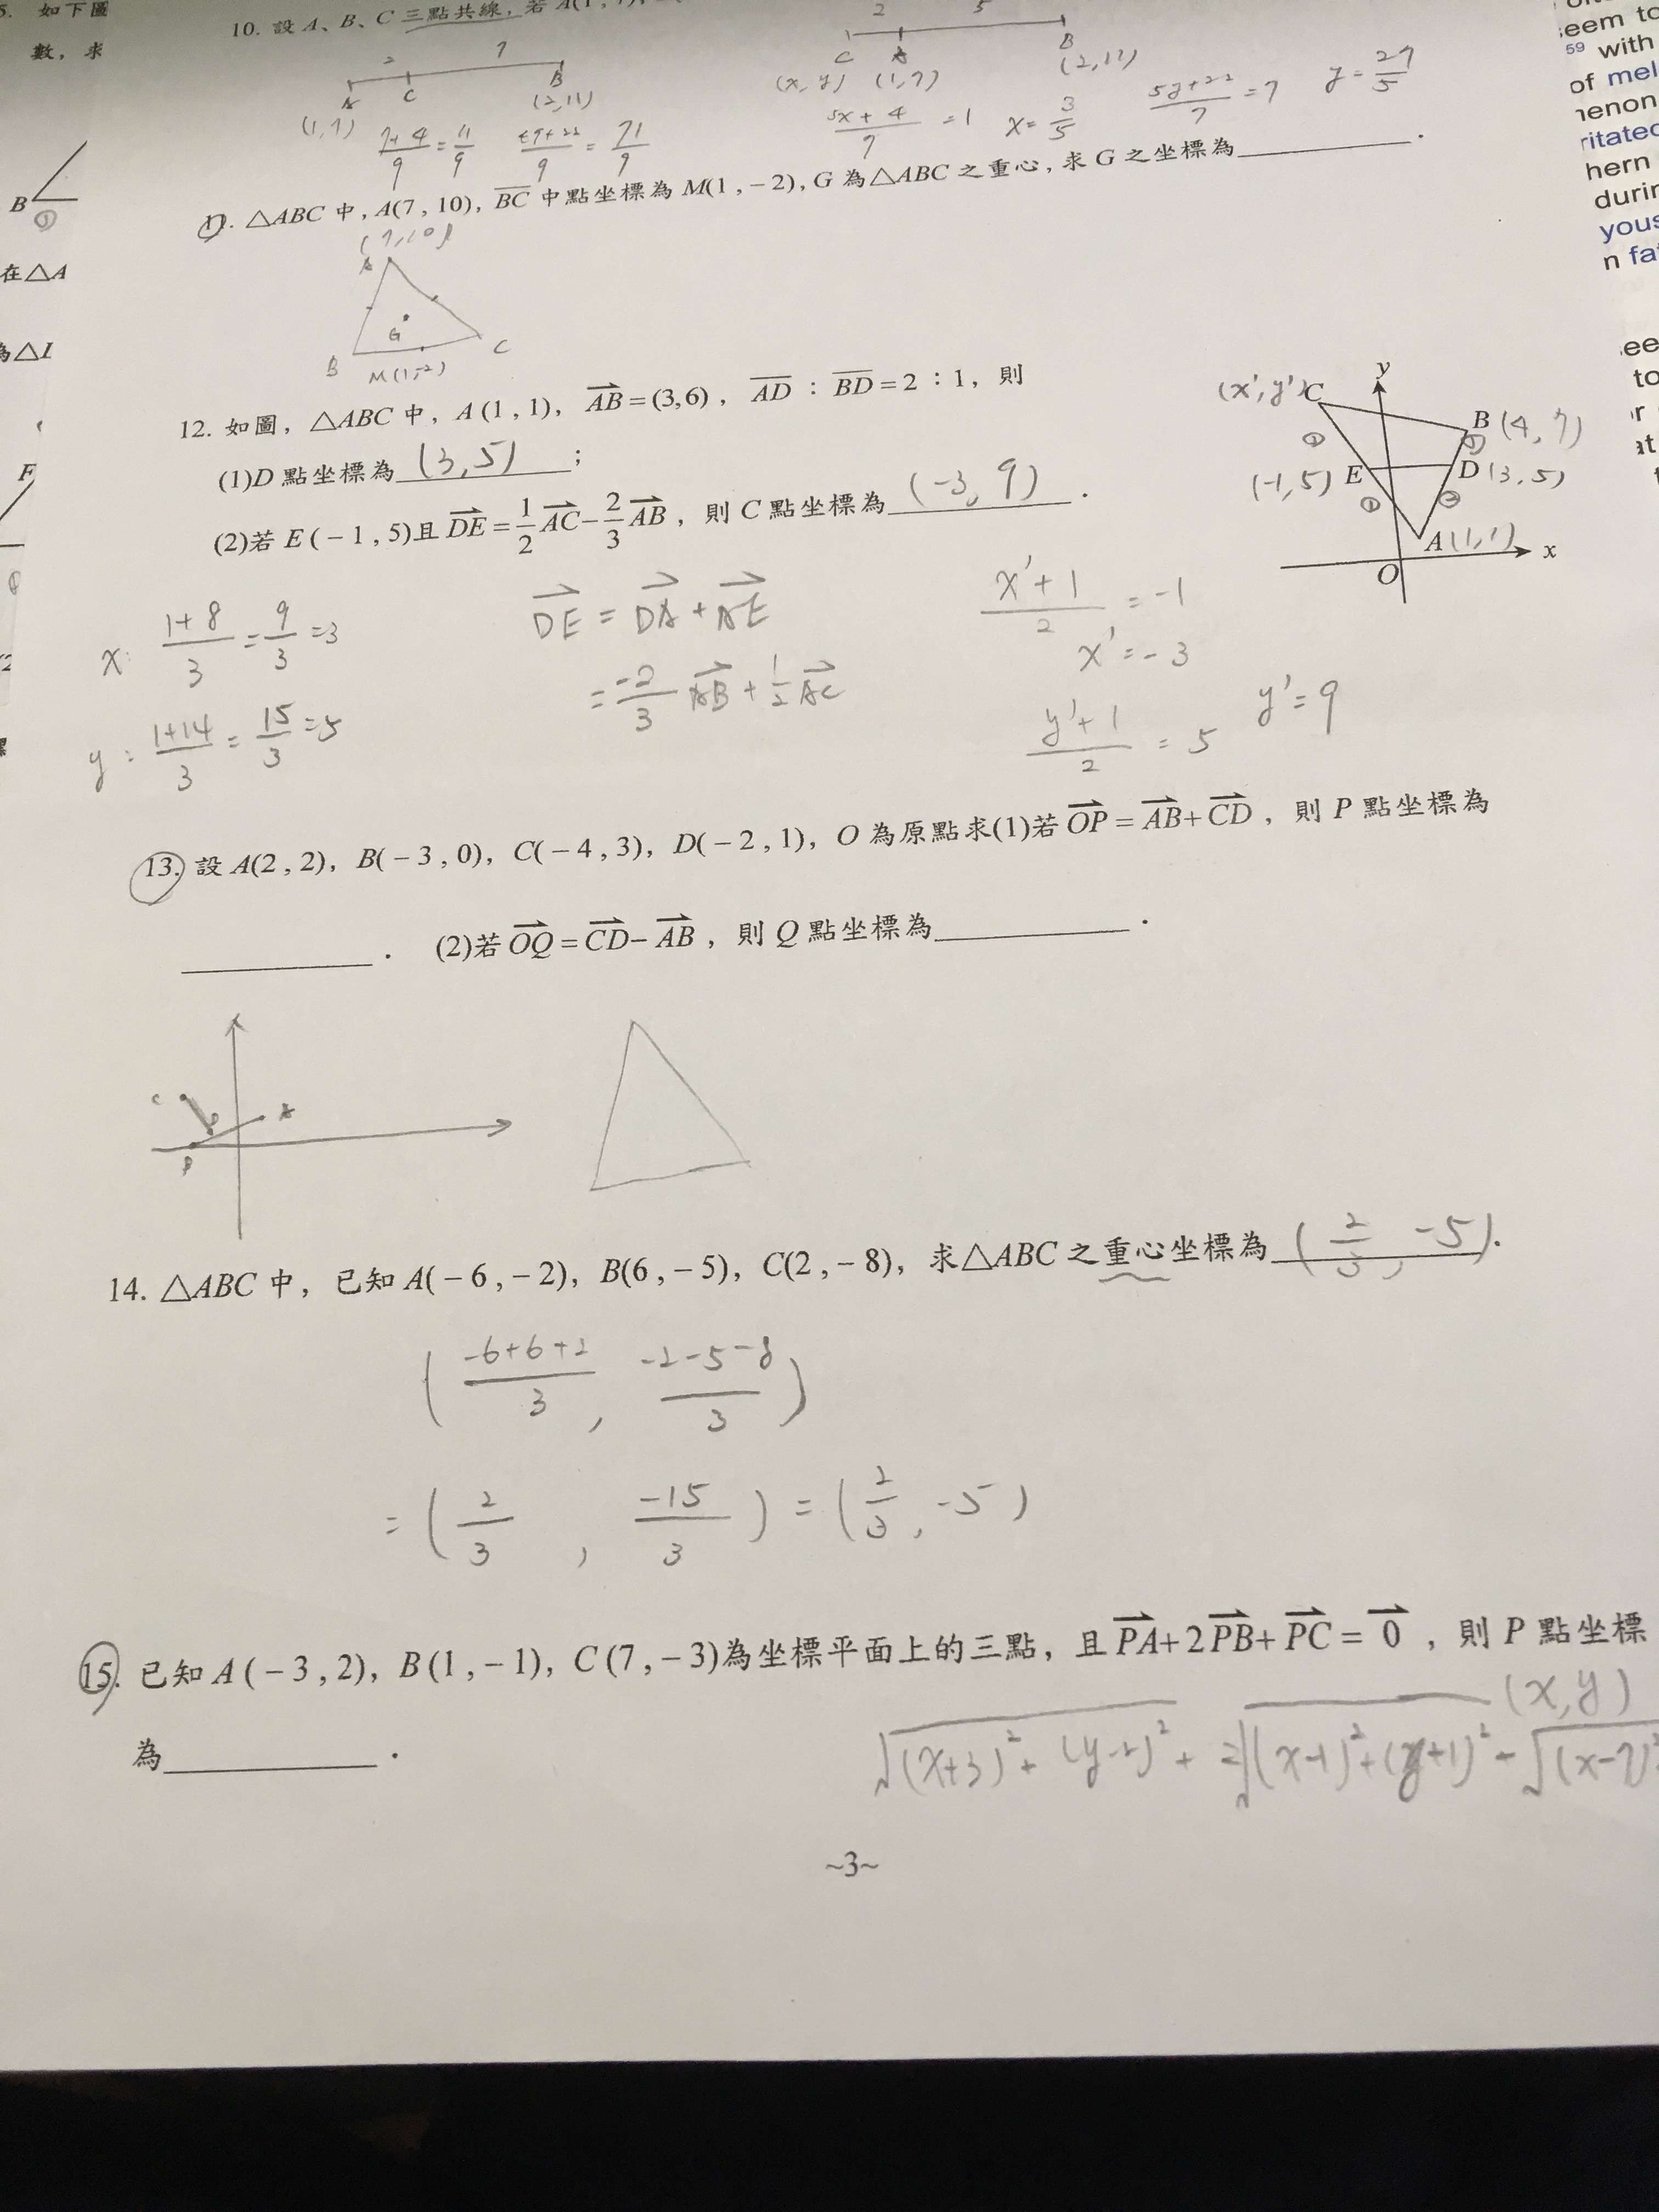 5. 如下圖
數，求
B
①
在△A
為△I
F
10. 設 A、B、C 三點共線，若 A(1, 7),
2 7
A C B
(1,7) (2,11)
7+4/9 = 11/9 49+22/9 = 71/9
2 5
C A B
(x, y) (1,7) (2,11)
5x+4/7 = 1 x = 3/5 5y+22/7 = 7 y = 27/5
11. △ABC 中, A(7, 10), BC 中點坐標為 M(1, −2), G 為△ABC 之重心, 求 G 之坐標為 .
(7,10)
A
G
B C
M(1,-2)
12. 如圖，△ABC 中，A(1, 1)，AB = (3,6)，AD : BD = 2 : 1，則
(1)D 點坐標為 (3,5) ;
(2)若 E(−1, 5)且 DE = 1/2 AC − 2/3 AB，則 C 點坐標為 (-3, 9) .
y
(x', y') C
B (4, 7)
① ①
(-1,5) E D (3,5)
① ②
A (1,1)
O x
x: 1+8/3 = 9/3 = 3
y: 1+14/3 = 15/3 = 5
DE = DA + AE
= -2/3 AB + 1/2 AC
x'+1/2 = -1
x' = -3
y'+1/2 = 5 y' = 9
13. 設 A(2, 2)，B(−3, 0)，C(−4, 3)，D(−2, 1)，O 為原點求(1)若 OP = AB + CD，則 P 點坐標為
. (2)若 OQ = CD − AB，則 Q 點坐標為 .
C A
D
B
14. △ABC 中，已知 A(−6, −2)，B(6, −5)，C(2, −8)，求△ABC 之重心坐標為 (2/3, -5).
(-6+6+2/3, -2-5-8/3)
= (2/3, -15/3) = (2/3, -5)
15. 已知 A(−3, 2)，B(1, −1)，C(7, −3)為坐標平面上的三點，且 PA + 2PB + PC = 0，則 P 點坐標
(x,y)
為 .
√(x+3)²+(y-2)² + 2√(x-1)²+(y+1)² + √(x-7)²
~3~
seem to
59 with
of mel
henon
ritated
hern
durin
yous
n fa
see
to